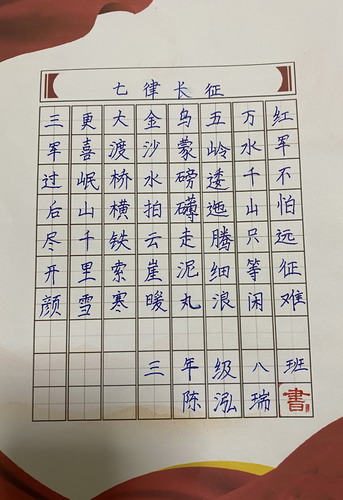 七律长征
红军不怕远征难
万水千山只等闲
五岭逶迤腾细浪
乌蒙磅礴走泥丸
金沙水拍云崖暖
大渡桥横铁索寒
更喜岷山千里雪
三军过后尽开颜
三年级八班
陈泓瑞書